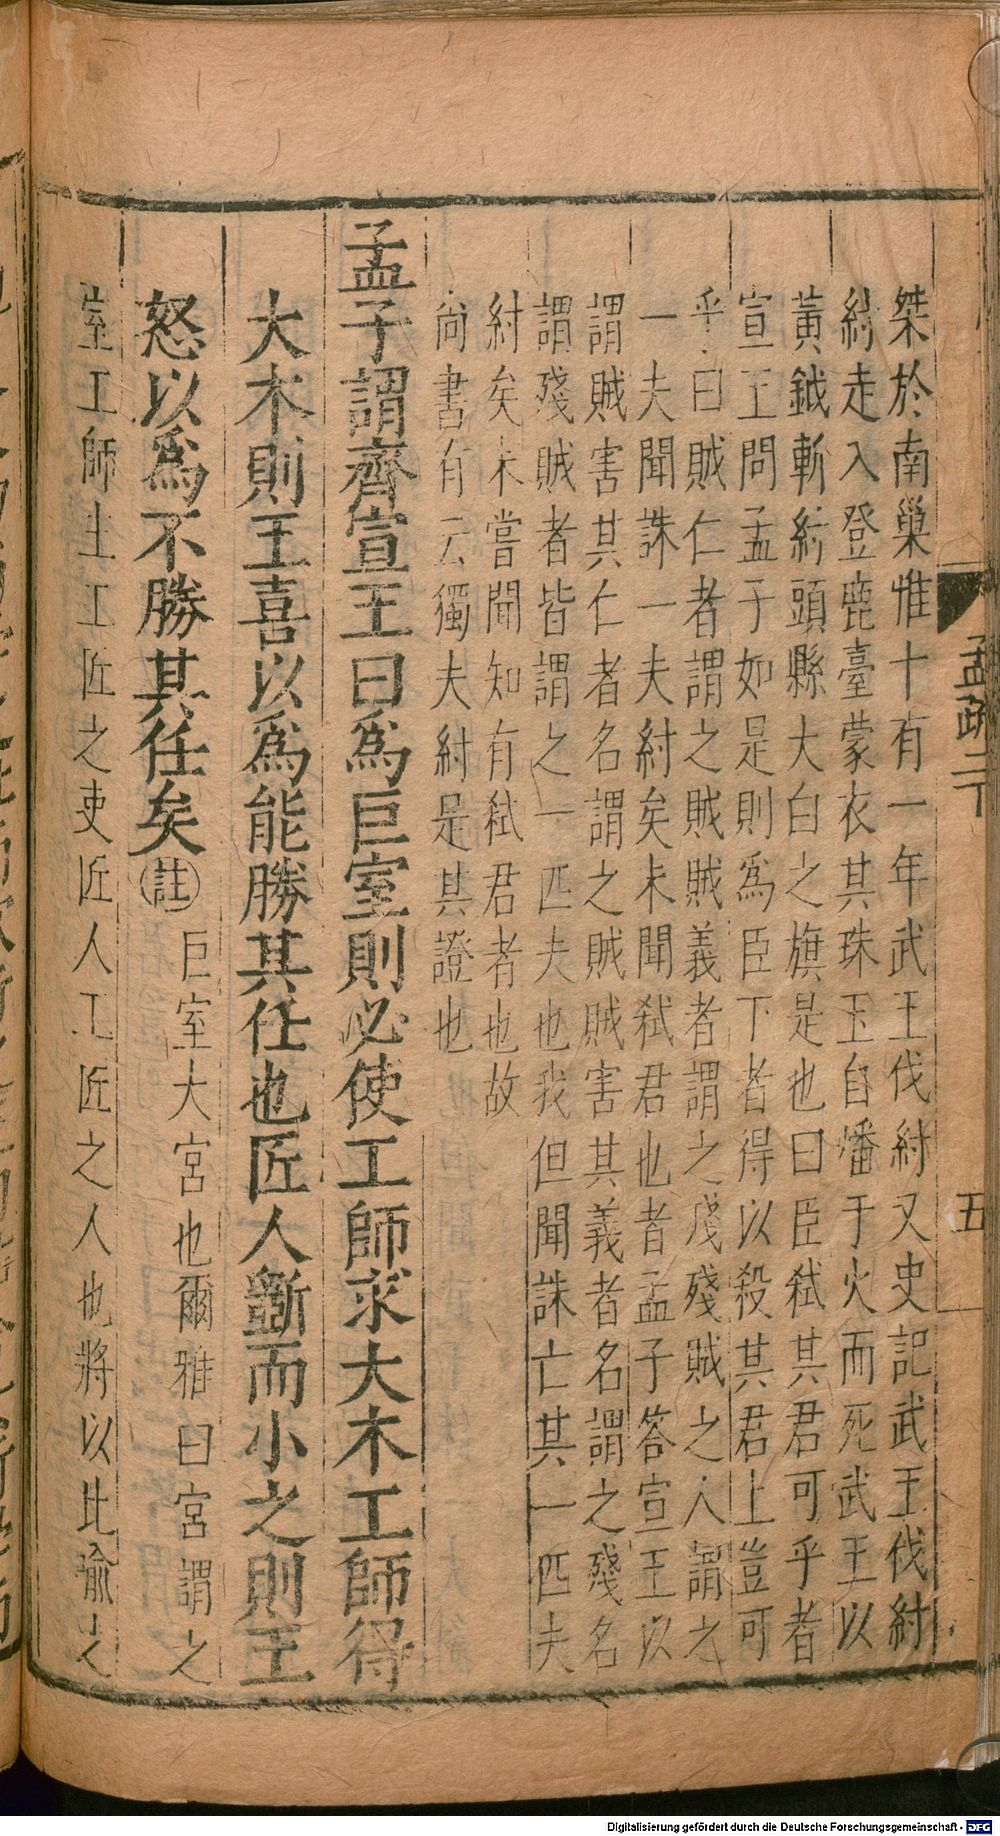 桀於南巢惟十有一年武王伐紂又史記武王伐紂
紂走入登鹿臺蒙衣其珠玉自燔于火而死武王以
黃鉞斬紂頭縣大白之旗是也曰臣弒其君可乎者
宣王問孟子如是則爲臣下者得以殺其君上豈可
乎曰賊仁者謂之賊賊義者謂之殘殘賊之人謂之
一夫聞誅一夫紂矣未聞弒君也者孟子答宣王以
謂賊害其仁者名謂之賊賊害其義者名謂之殘名
謂殘賊者皆謂之一匹夫也我但聞誅亡其一匹夫
紂矣未嘗聞知有弒君者也故
尚書有云獨夫紂是其證也
孟子謂齊宣王曰爲巨室則必使工師求大木工師得
大木則王喜以爲能勝其任也匠人斲而小之則王
怒以爲不勝其任矣註巨室大宮也爾雅曰宮謂之
室工師主工匠之吏匠人工匠之人也將以比喻之
孟疏二下
五
Digitalisierung gefördert durch die Deutsche Forschungsgemeinschaft - DFG